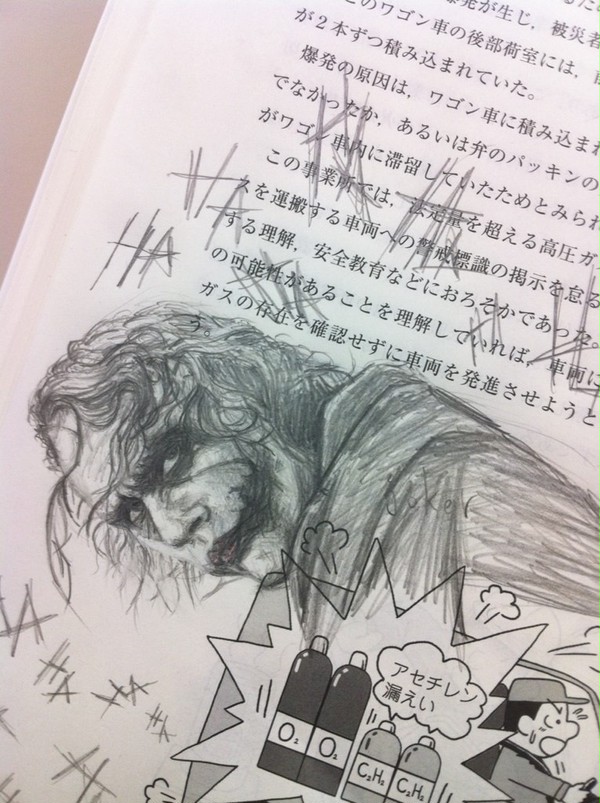 発が生じ，被災者
このワゴン車の後部荷室には，
が2本ずつ積み込まれていた。
爆発の原因は，ワゴン車に積み込まれ
でなかったか，あるいは弁のパッキンの
がワゴン車内に滞留していたためとみられ
この事業所では，法定量を超える高圧ガ
スを運搬する車両への警戒標識の掲示を怠る
する理解，安全教育などにおろそかであった。
の可能性があることを理解していれば，車両に
ガスの存在を確認せずに車両を発進させようと
う。
HA
HA
HA
HA
HA
Joker
アセチレン
漏えい
O₂ O₂
C₂H₂ C₂H₂
HA
HA
HA
HA